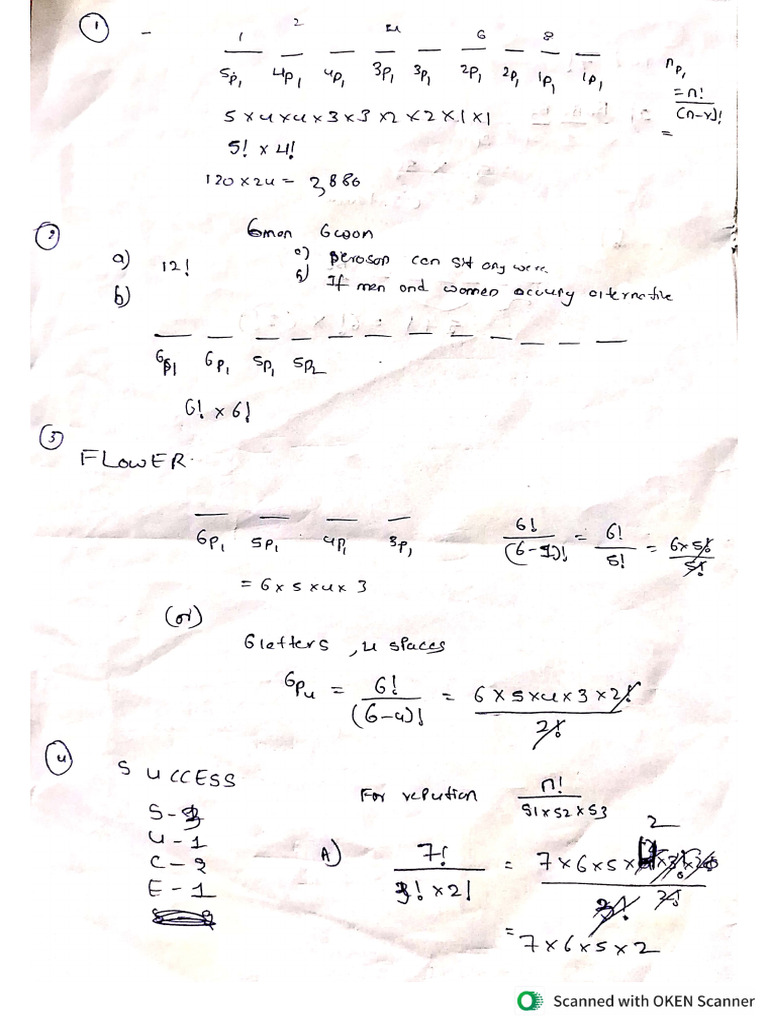 ① -
1 2 4 6 8
5p₁ 4p₁ 4p₁ 3p₁ 3p₁ 2p₁ 2p₁ 1p₁ 1p₁
nP₁ = n!/(n-r)!
=
5 x 4 x 4 x 3 x 3 x 2 x 2 x 1 x 1
5! x 4!
120 x 24 = 2,880
② 6 men 6 women
a) 12! a) peroson can sit any were
b) b) If men and women occupy alternative
6p₁ 6p₁ 5p₁ 5p₂
6! x 6!
③
FLOWER
6p₁ 5p₁ 4p₁ 3p₁
6!/(6-1)! = 6!/5! = 6x5!/5!
= 6 x 5 x 4 x 3
(or)
6 letters, 4 spaces
6p₄ = 6!/(6-4)! = 6 x 5 x 4 x 3 x 2!/2!
④ SUCCESS
For repution n!/S1 x S2 x S3
S - 3
U - 1
C - 2
E - 1
A) 7!/3! x 2! = 7 x 6 x 5 x
2
3! 2!
= 7 x 6 x 5 x 2
Scanned with OKEN Scanner